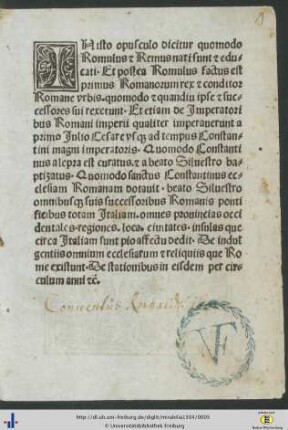 IN isto opusculo dicitur quomodo
Romulus & Remus nati sunt & edu-
cati. Et postea Romulus factus est
primus Romanorum rex & conditor
Romane vrbis. quomodo & quandiu ipse & suc-
cessores sui rexerunt. Et etiam de Imperatori
bus Romani imperii qualiter imperauerunt a
primo Julio Cesare vsq3 ad tempus Constan-
tini magni imperatoris. Quomodo Constanti
nus a lepra est curatus. & a beato Siluestro ba-
ptizatus. Quomodo sanctus Constantinus ec-
clesiam Romanam dotauit. beato Siluestro
omnibusq3 suis successoribus Romanis ponti
ficibus totam Italiam. omnes prouincias occi
dentales. regiones. loca. ciuitates. insulas que
circa Italiam sunt pio affectu dedit. De indul
gentiis omnium ecclesiarum & reliquiis que Ro
me existunt. De stationibus in eisdem per cir-
culum anni &c.
Conuentus
VF
http://dl.ub.uni-freiburg.de/diglit/mirabilia1504/0005
© Universitätsbibliothek Freiburg